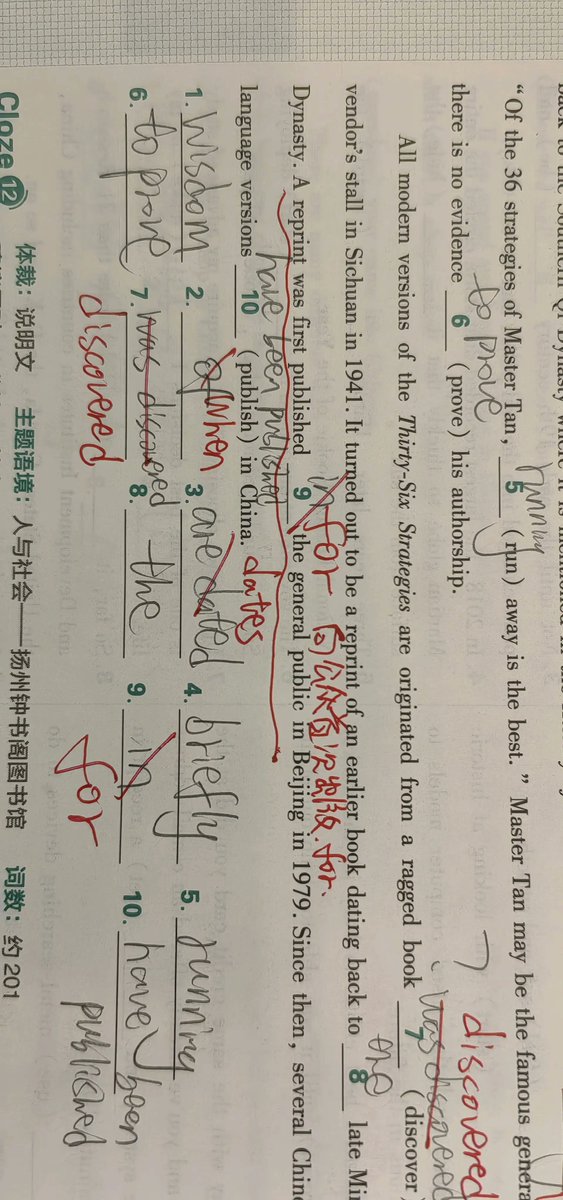 back to the Southern Qi Dynasty where it is mentioned in the
"Of the 36 strategies of Master Tan, 5 (run) away is the best." Master Tan may be the famous genera
running
there is no evidence 6 (prove) his authorship.
to prove
All modern versions of the Thirty-Six Strategies are originated from a ragged book 7 (discover)
was discovered
discovered
vendor's stall in Sichuan in 1941. It turned out to be a reprint of an earlier book dating back to 8 late Mi
the
Dynasty. A reprint was first published 9 the general public in Beijing in 1979. Since then, several Chine
in for 向公众首次出版.for.
language versions 10 (publish) in China.
have been published
dates
1. wisdom 2. of when 3. are dated 4. briefly 5. running
6. to prove 7. was discovered 8. the 9. in 10. have been published
discovered
for
Cloze 12 体裁：说明文 主题语境：人与社会——扬州钟书阁图书馆 词数：约 201